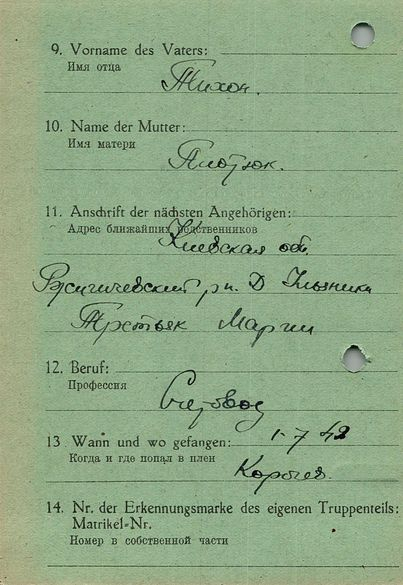 9. Vorname des Vaters:
Имя отца
Тихон.
10. Name der Mutter:
Имя матери
Плотюк.
11. Anschrift der nächsten Angehörigen:
Адрес ближайших родственников
Киевская обл.
рн. Д
Третьяк Марии
12. Beruf:
Профессия
Счетовод
13 Wann und wo gefangen: 1-7 42
Когда и где попал в плен
Короча.
14. Nr. der Erkennungsmarke des eigenen Truppenteils:
Matrikel-Nr.
Номер в собственной части